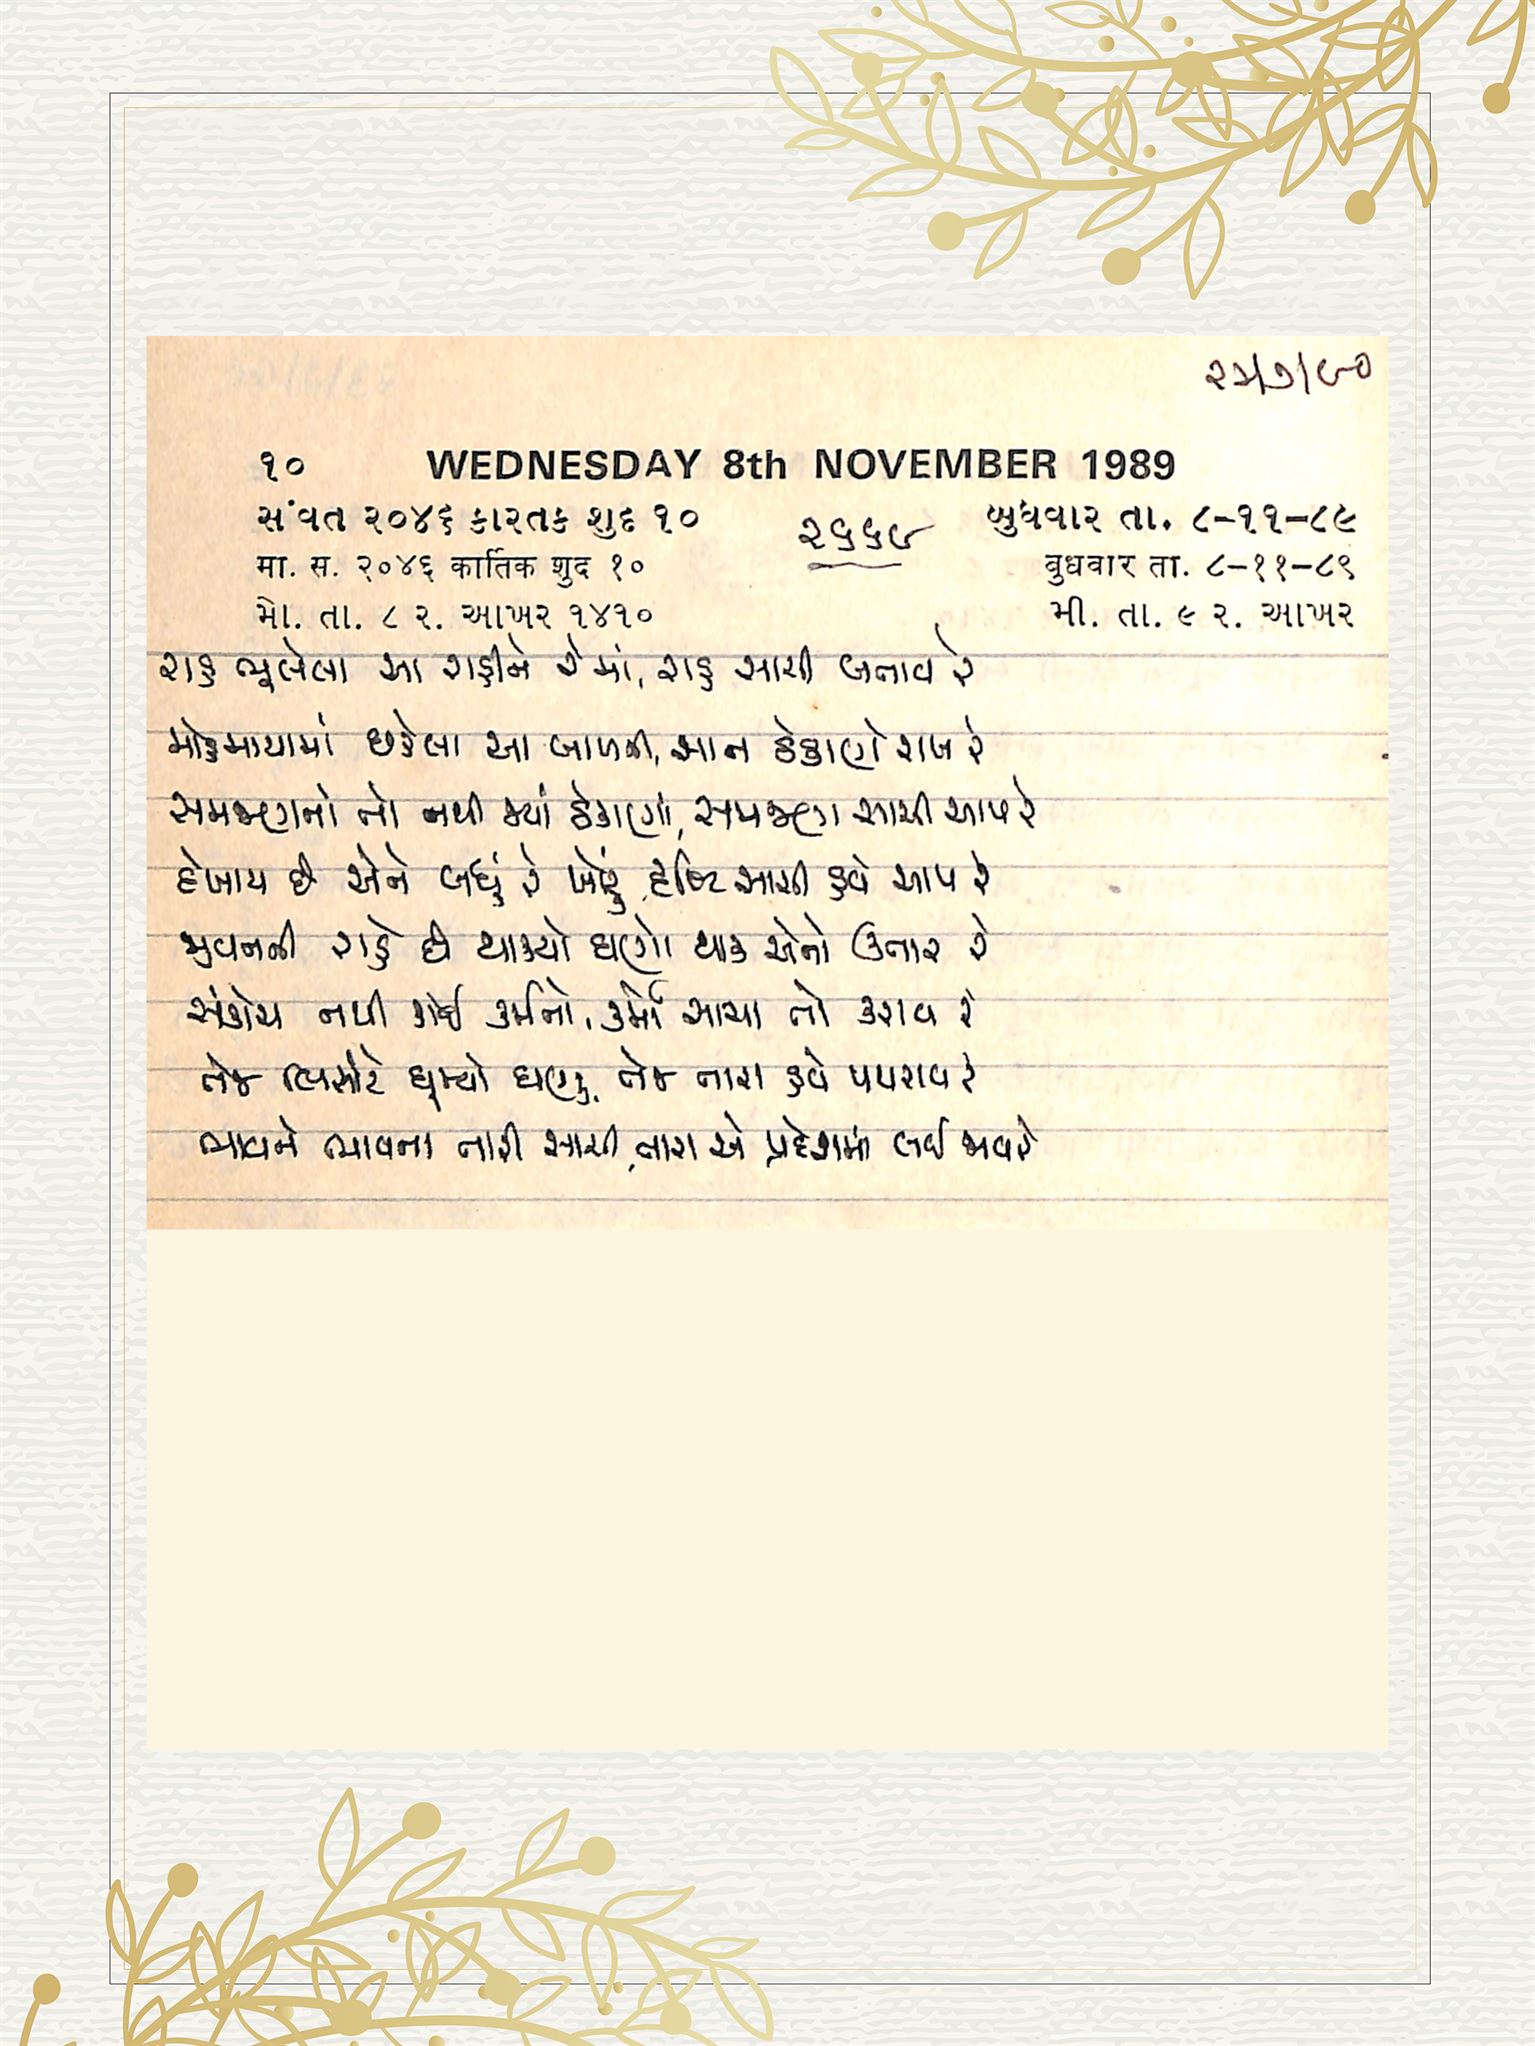 ૨૩/૭/૯૦
૧૦ WEDNESDAY 8th NOVEMBER 1989
સંવત ૨૦૪૬ કારતક શુદ ૧૦ ૨૬૬૯ બુધવાર તા. ૮-૧૧-૮૯
मा. स. २०४६ कार्तिक शुद १० बुधवार ता. ८-११-८९
મો. તા. ૮ ૨. આખર ૧૪૧૦ મી. તા. ૯ ૨. આખર
રાહ ભૂલેલા આ રાહીને રે માં, રાહ સાચી બતાવ રે
મોહમાયામાં છકેલા આ બાળની, સાન ઠેકાણે રાખ રે
સમજણનો તો નથી જ્યાં ઠેકાણાં, સમજણ સાચી આપ રે
દેખાય છે એને બધું રે ખોટું, દૃષ્ટિ સાચી હવે આપ રે
જીવનની રાહે છે થાક્યો ઘણો થાક એનો ઉતાર રે
સંકોચ નથી કોઈ કર્મનો, કર્મો સાચા તો કરાવ રે
તેજ ઘૂમ્યો ઘણું, તેજ તારા હવે પથરાવ રે
ભાવને ભાવના તારી સાચી, તારા એ પ્રદેશમાં લઈ જાવ રે